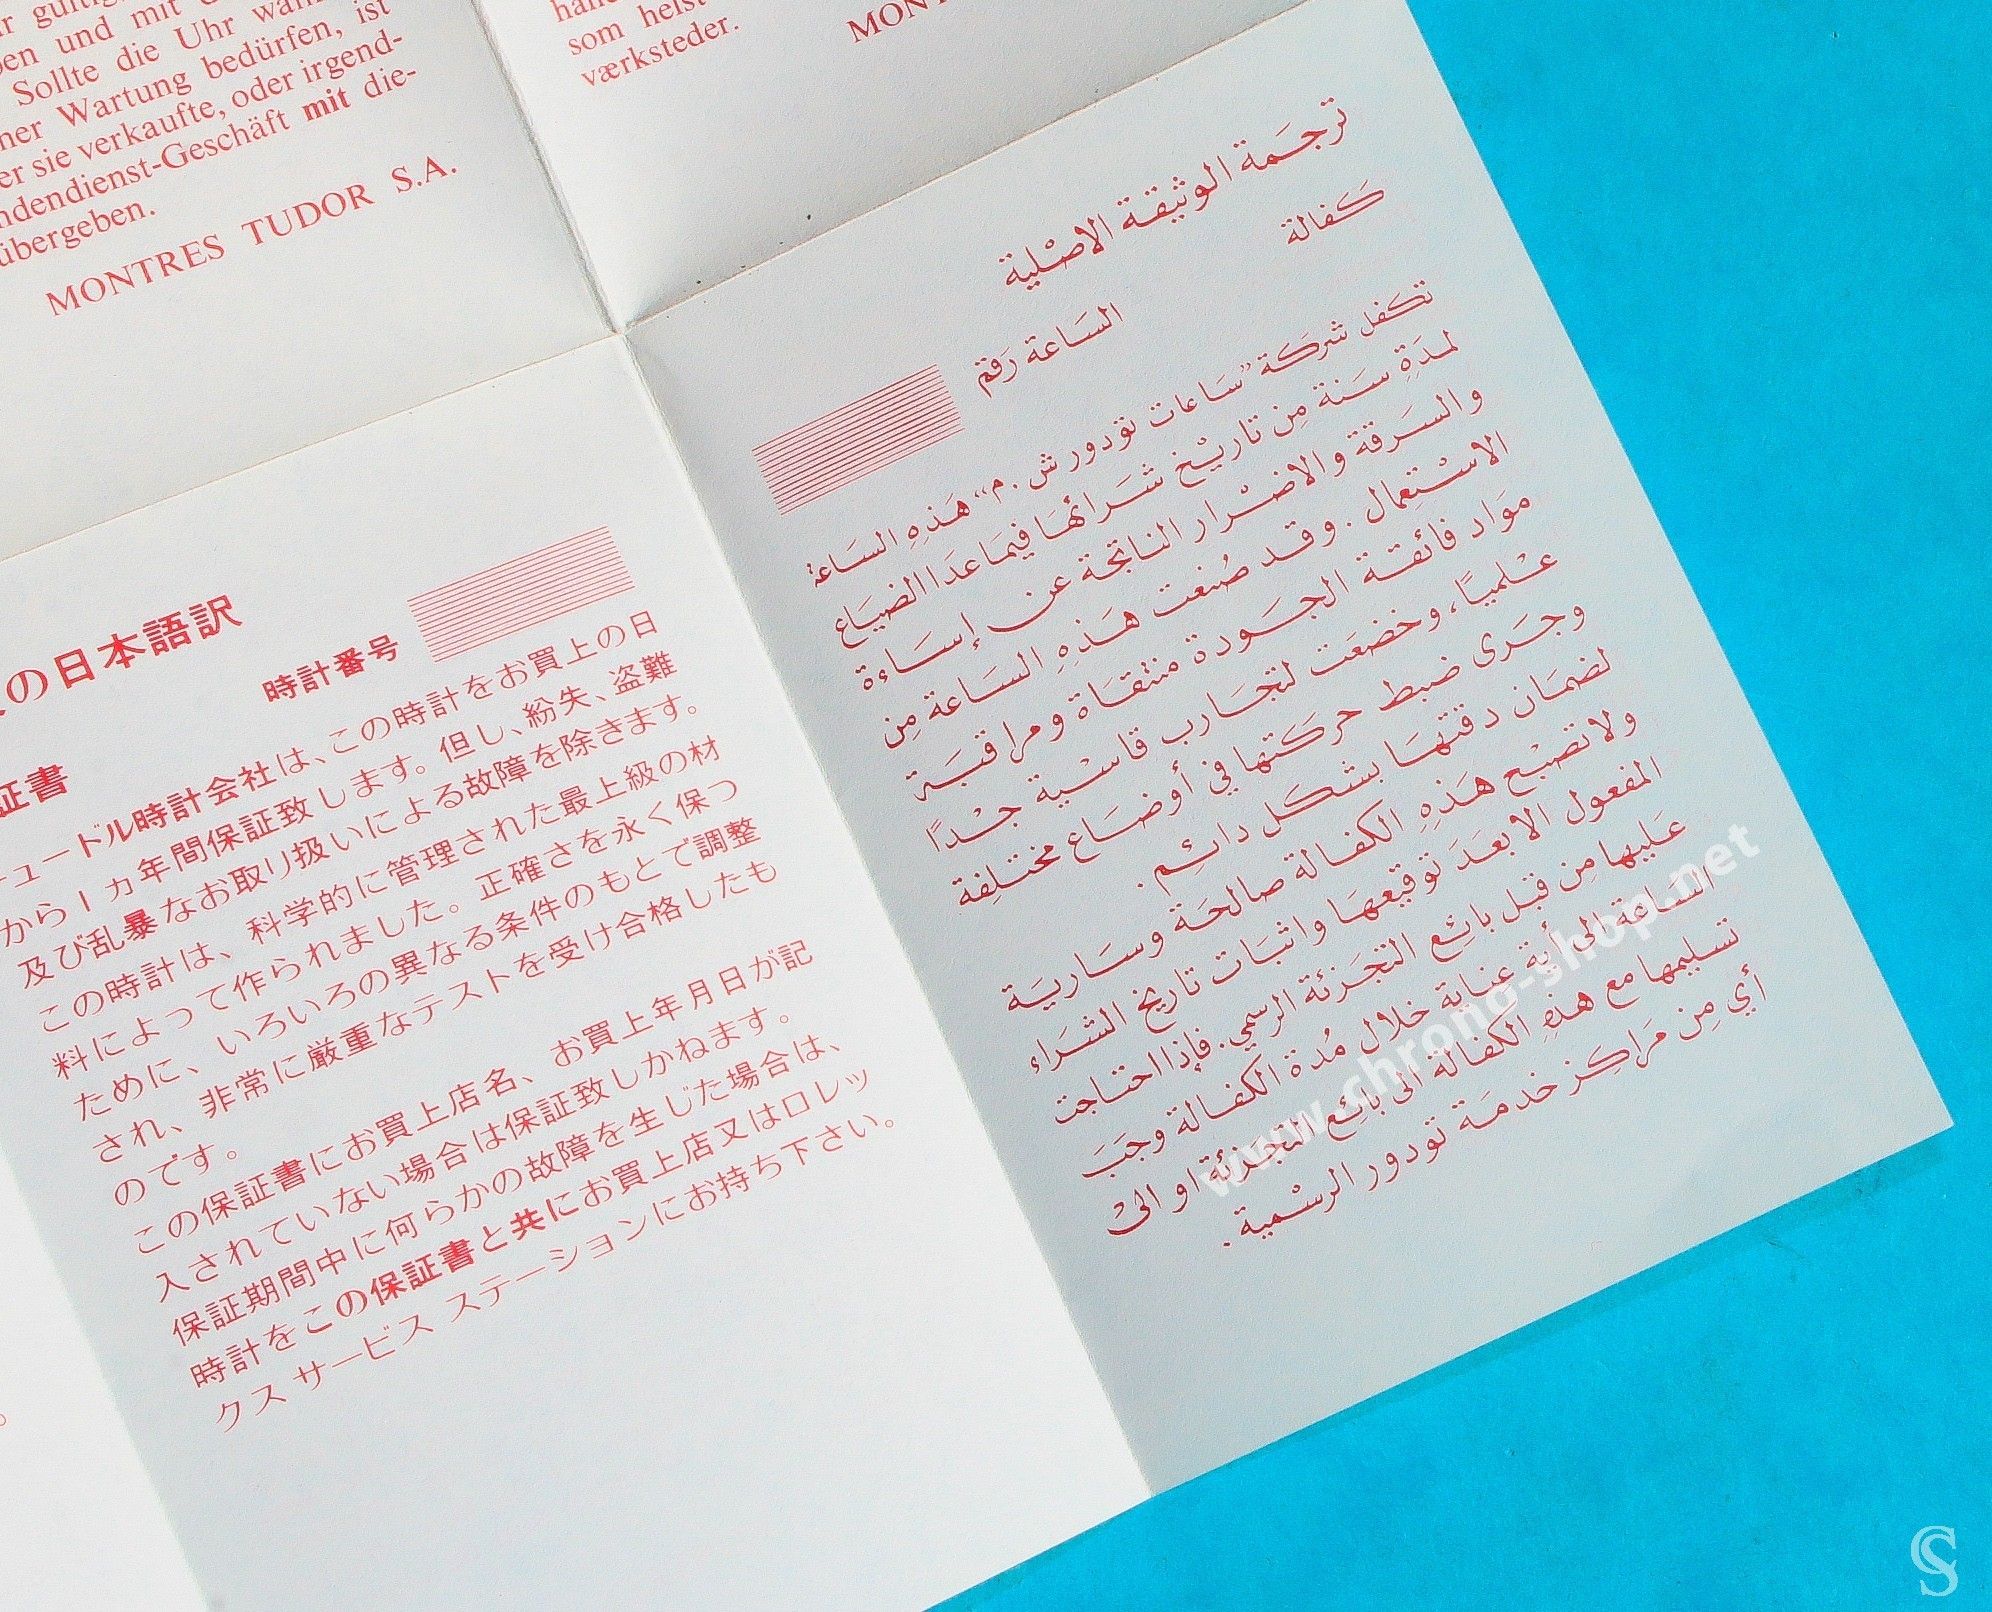 r gültig
ben und mit d
Sollte die Uhr wäh
ner Wartung bedürfen, ist
er sie verkaufte, oder irgend-
ndendienst-Geschäft mit die-
übergeben.
MONTRES TUDOR S.A.
som helst
værksteder.
MON
の日本語訳
時計番号
証書
ュードル時計会社は、この時計をお買上の日
から1ヵ年間保証致します。但し、紛失、盗難
及び乱暴なお取り扱いによる故障を除きます。
この時計は、科学的に管理された最上級の材
料によって作られました。正確さを永く保つ
ために、いろいろの異なる条件のもとで調整
され、非常に厳重なテストを受け合格したも
のです。
この保証書にお買上店名、お買上年月日が記
入されていない場合は保証致しかねます。
保証期間中に何らかの故障を生じた場合は、
時計をこの保証書と共にお買上店又はロレッ
クス サービス ステーションにお持ち下さい。
ترجمة الوثيقة الاصلية
كفالة
الساعة رقم
تكفل شركة "ساعات تودور ش.م" هذه الساعة
لمدة سنة من تاريخ شرائها فيما عدا الضياع
والسرقة والاضرار الناتجة عن إساءة
الاستعمال. وقد صنعت هذه الساعة من
مواد فائقة الجودة منتقاة ومراقبة
علمياً، وخضعت لتجارب قاسية جداً
وجرى ضبط حركتها في أوضاع مختلفة
لضمان دقتها بشكل دائم.
ولا تصبح هذه الكفالة صالحة وسارية
المفعول الا بعد توقيعها واثبات تاريخ الشراء
عليها من قبل بائع التجزئة الرسمي. فإذا احتاجت
الساعة الى أية عناية خلال مدة الكفالة وجب
تسليمها مع هذه الكفالة الى بائع التجزئة او الى
أي من مراكز خدمة تودور الرسمية.
www.chrono-shop.net